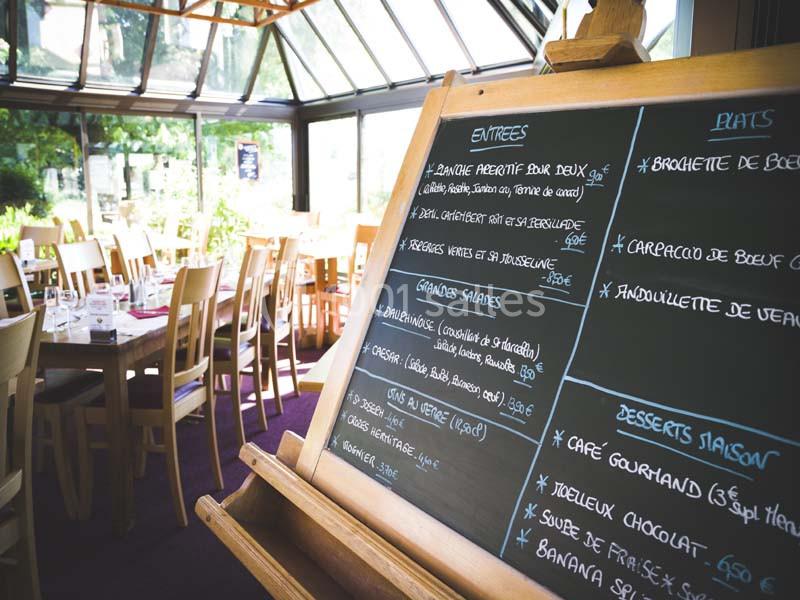 ENTREES
* PLANCHE APERITIF POUR DEUX 9,00€
Rosette, Jambon cru, Terrine de canard)
* DEMI CAMEMBERT ROTI ET SA PERSILLADE
6,50€
* ASPERGES VERTES ET SA MOUSSELINE
8,50€
GRANDES SALADES
* DAUPHINOISE (croustillant de St Marcellin,
Salade, lardons, Ravioles) 13,50€
* CAESAR: (Salade, Poulet, Parmesan, oeuf). 13,50€
VINS AU VERRE (12,50cl)
* ST JOSEPH 4,60€
* CROZES HERMITAGE 4,40€
* VIOGNIER 3,70€
PLATS
* BROCHETTE DE BOEU
* CARPACCIO DE BOEUF
* ANDOUILLETTE DE VEAU
DESSERTS MAISON
* CAFÉ GOURMAND (3€ Supl Menu
* MOELLEUX CHOCOLAT 6,50€
* SOUPE DE FRAISE
* BANANA SPLIT
1001 salles